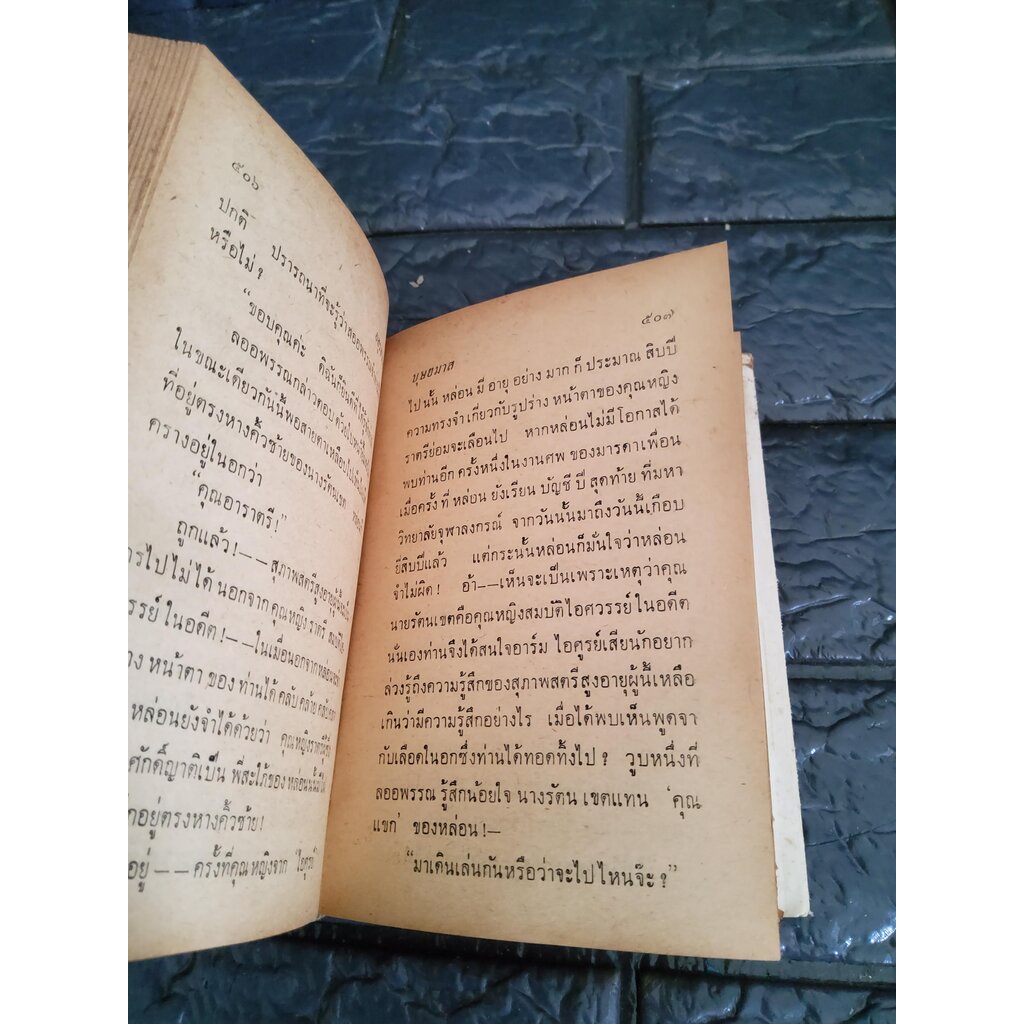 ๕๐๖
ปกติ ปรารถนาที่จะรู้ว่าลออพรรณ
หรือไม่ ?
“ขอบคุณค่ะ ดิฉันก็ยินดีที่ได้รู้จัก
ลออพรรณกล่าวตอบ ด้วย
ในขณะเดียวกันนั้นพอสายตาเหลือบไป
ที่อยู่ตรงหางคิ้วซ้ายของนางรัตนเขต
ครางอยู่ในอกว่า
“คุณอาราตรี!”
ถูกแล้ว!——สุภาพสตรีสูงอายุผู้นี้
ไปไม่ได้ นอกจาก คุณหญิง ราตรี
ในอดีต!——ในเมื่อนอกจาก
หน้าตา ของ ท่านได้ คลับ คล้าย คลับคลา
หล่อนยังจำได้ด้วยว่า คุณหญิงราตรีผู้นี้
ศักดิ์ญาติเป็น พี่สะใภ้ของ หล่อน
อยู่ตรงหางคิ้วซ้าย!
อยู่——ครั้งที่คุณหญิงจาก
๕๐๗
บุษยมาส
ไปนั้น หล่อน มี อายุ อย่าง มาก ก็ ประมาณ สิบปี
ความทรงจำ เกี่ยวกับรูปร่าง หน้าตาของคุณหญิง
ราตรีย่อมจะเลือนไป หากหล่อนไม่มีโอกาสได้
พบท่านอีก ครั้งหนึ่งในงานศพ ของมารดาเพื่อน
เมื่อครั้ง ที่ หล่อน ยังเรียน บัญชี ปี สุดท้าย ที่มหา
วิทยาลัยจุฬาลงกรณ์ จากวันนั้นมาถึงวันนี้เกือบ
ยี่สิบปีแล้ว แต่กระนั้นหล่อนก็มั่นใจว่าหล่อน
จำไม่ผิด! อ้า——เห็นจะเป็นเพราะเหตุว่าคุณ
นายรัตนเขตคือคุณหญิงสมบัติไอศวรรย์ ในอดีต
นั่นเองท่านจึงได้สนใจอาร์ม ไอศูรย์เสียนักอยาก
ล่วงรู้ถึงความรู้สึกของสุภาพสตรีสูงอายุผู้นี้เหลือ
เกินว่ามีความรู้สึกอย่างไร เมื่อได้พบเห็นพูดจา
กับเลือดในอกซึ่งท่านได้ทอดทิ้งไป ? วูบหนึ่งที่
ลออพรรณ รู้สึกน้อยใจ นางรัตน เขตแทน ‘คุณ
แขก’ ของหล่อน!—
“มาเดินเล่นกันหรือว่าจะไปไหนจ๊ะ ?”